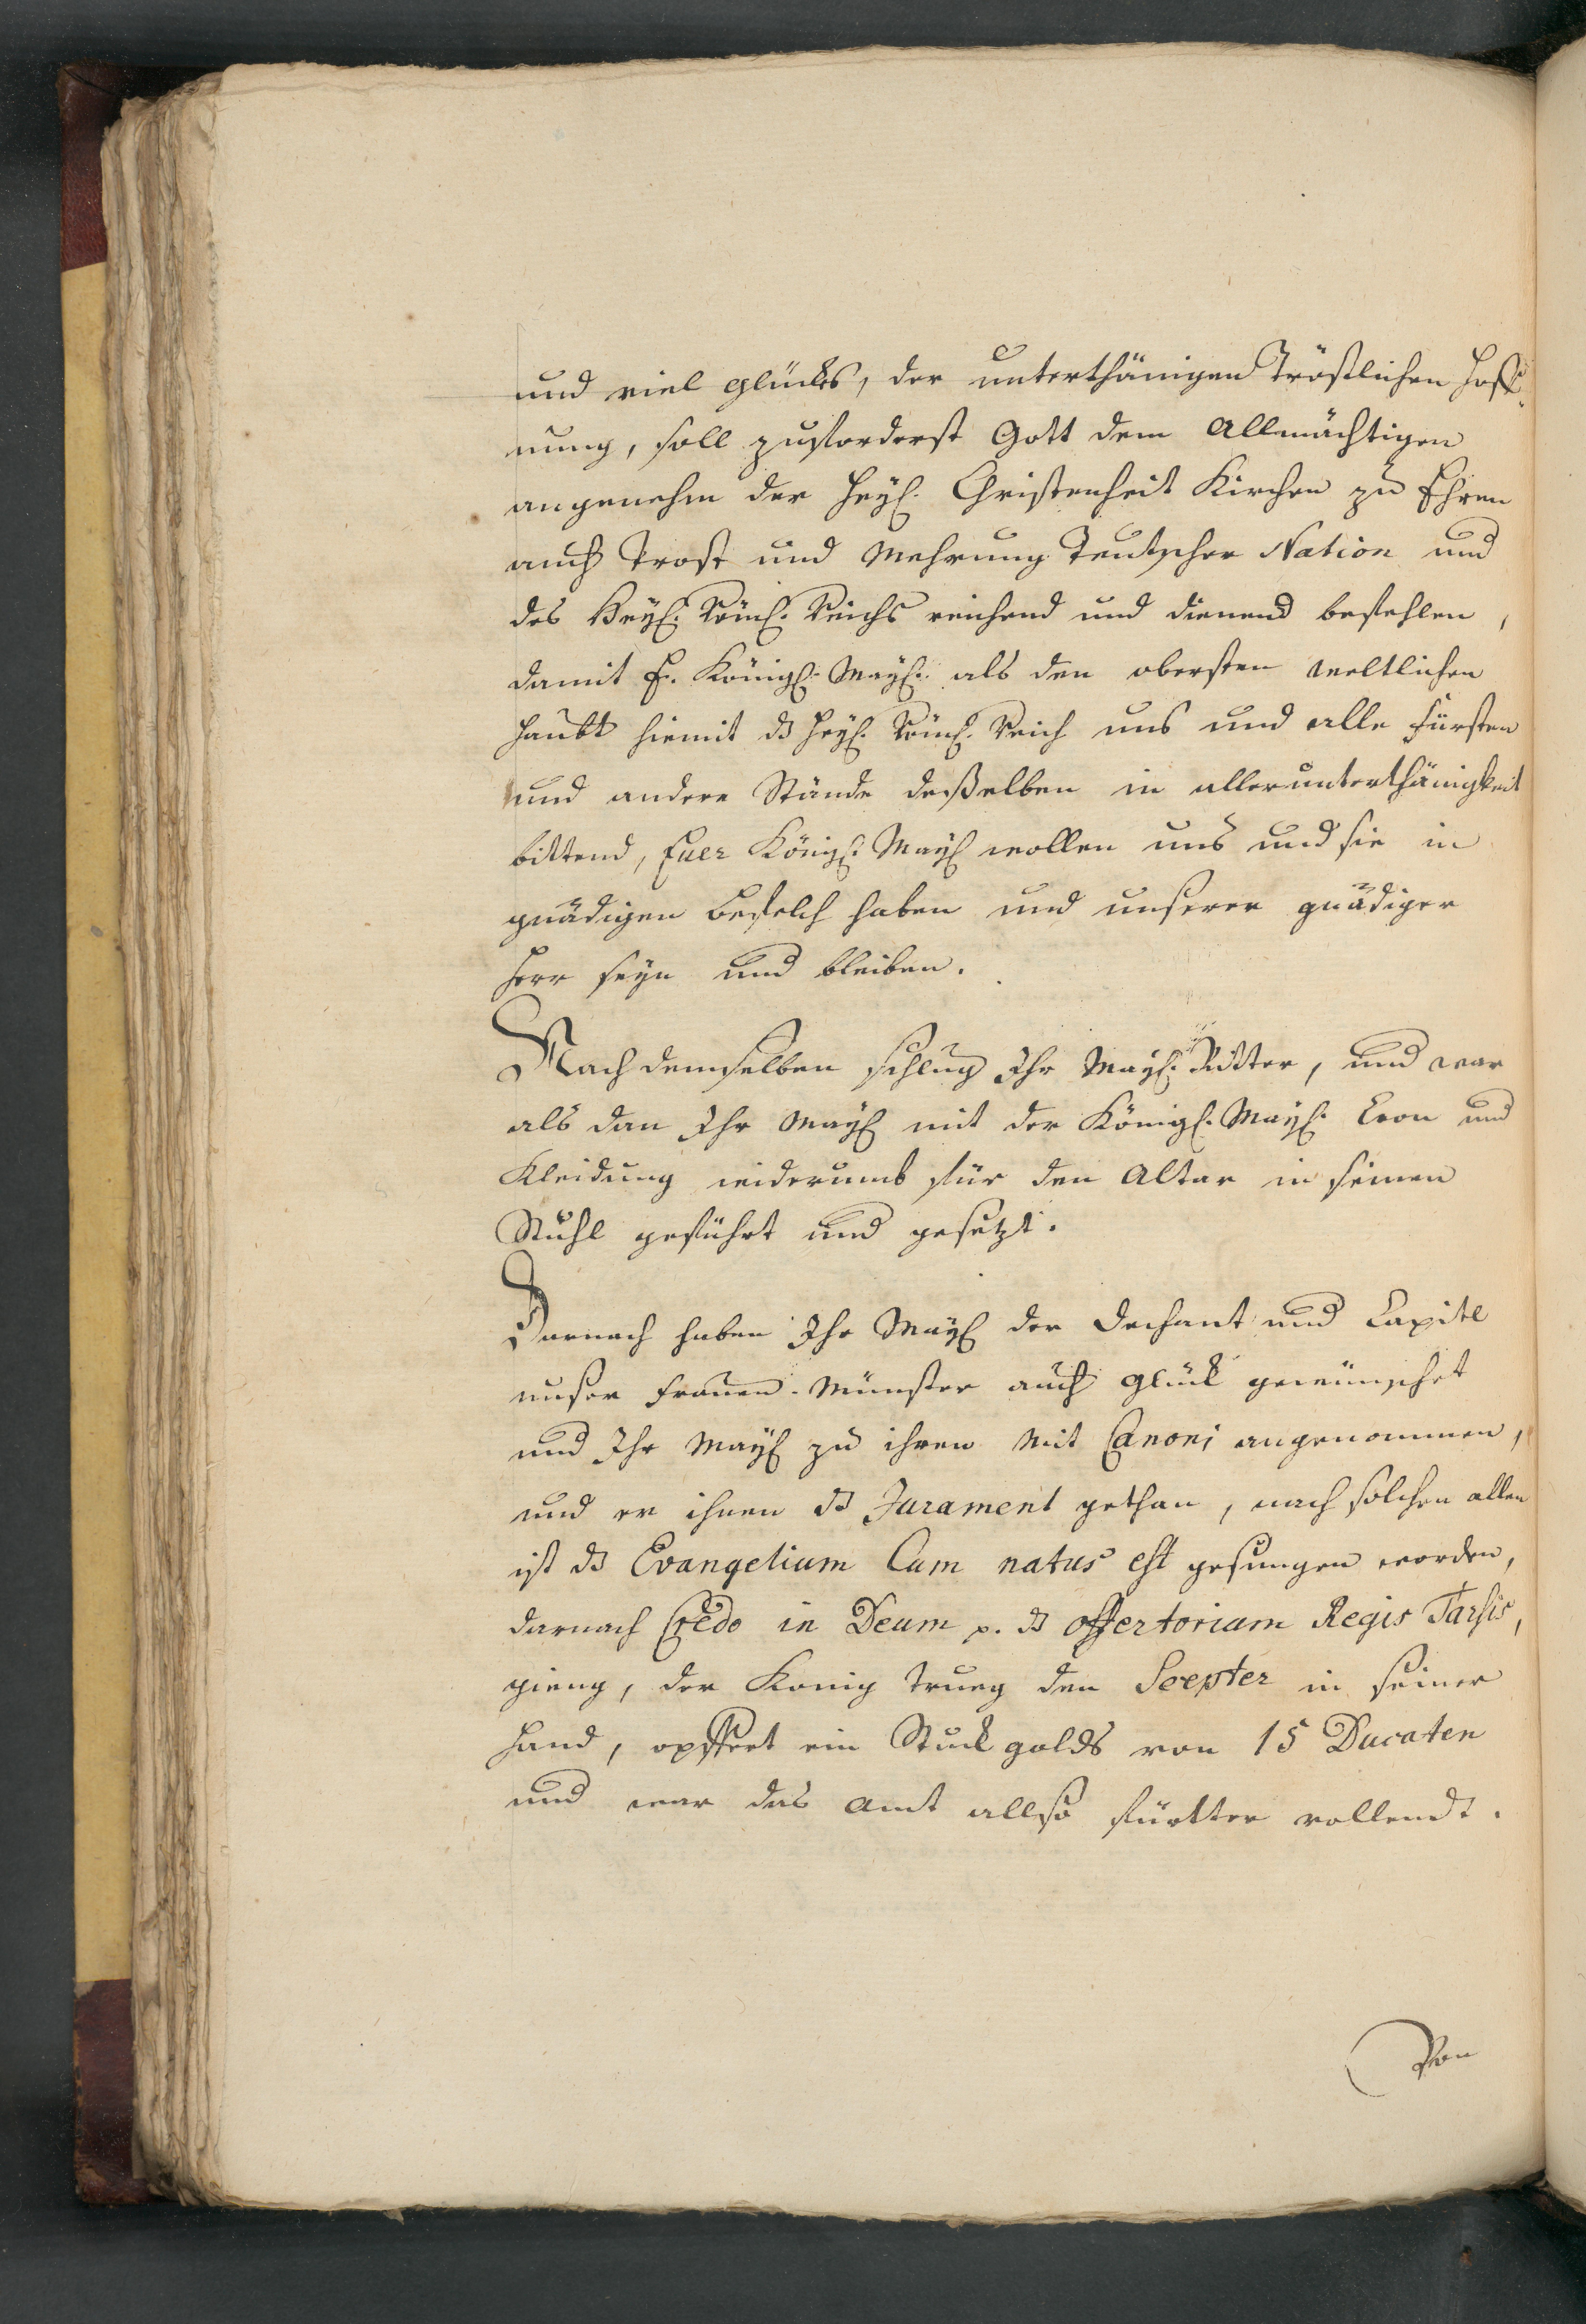 und viel glückes, der unterthänigen Tröstlichen Hoff-
nung, soll zuforderst Gott dem Allmächtigen
angenehm der Heyl. Christenheit Kirchen zu Ehren
auch Trost und Mehrung Teutscher Nation und
des Heyl. Röml. Reichs reichend und dienend befehlen,
damit E. Königl. Mayl. als den obersten weltlichen
Haubt hiemit ds Heyl. Röml. Reich uns und alle Fürsten
und andere Stände deßelben in allerunterthänigkeit
bittend, Euer Königl. Mayl wollen uns und sie in
gnädigen Befelch haben und unserer gnädiger
Herr seyn und bleiben.
Nach demselben schlug Ihr Mayl. Ritter, und war
als dan Ihr Mayl mit der Königl. Mayl. Cron und
Kleidung widerumb für den Altar in seinen
Stuhl geführt und gesetzt.
Darnach haben Ihr Mayl der Dechant und Capitl
unser Frauen-Münster auch Glück gewünschet
und Ihr Mayl zu ihren Mit Canoni angenommen,
und er ihnen ds Jurament gethan, nach solchen allen
ist ds Evangelium Cum natus est gesungen worden,
darnach Credo in Deum p. ds offertorium Regis Tarsis,
gieng, der Konig Trueg den Scepter in seiner
Hand, opffert ein Stuck golds von 15 Ducaten
und war das Amt allso fürtter vollendt.
Von